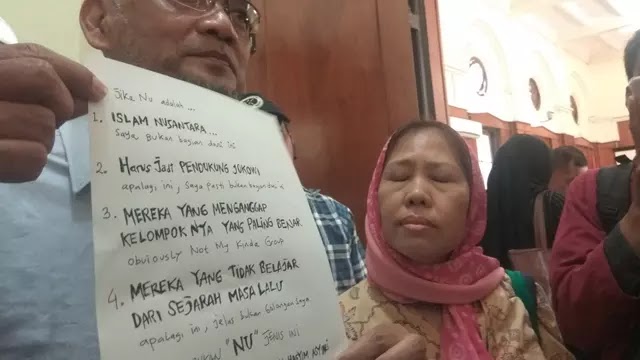 Jika NU adalah...
1. ISLAM NUSANTARA...
Saya bukan bagian dari ini
2. Harus Jadi PENDUKUNG JOKOWI
apalagi ini, saya pasti bukan bagian dari
3. MEREKA YANG MENGANGGAP
KELOMPOK NYA YANG PALING BENAR
obviously Not My Kinda Group
4. MEREKA YANG TIDAK BELAJAR
DARI SEJARAH MASA LALU
apalagi ini, jelas bukan golongan saya
"NU" JENIS INI
HASYIM ASY'ARI